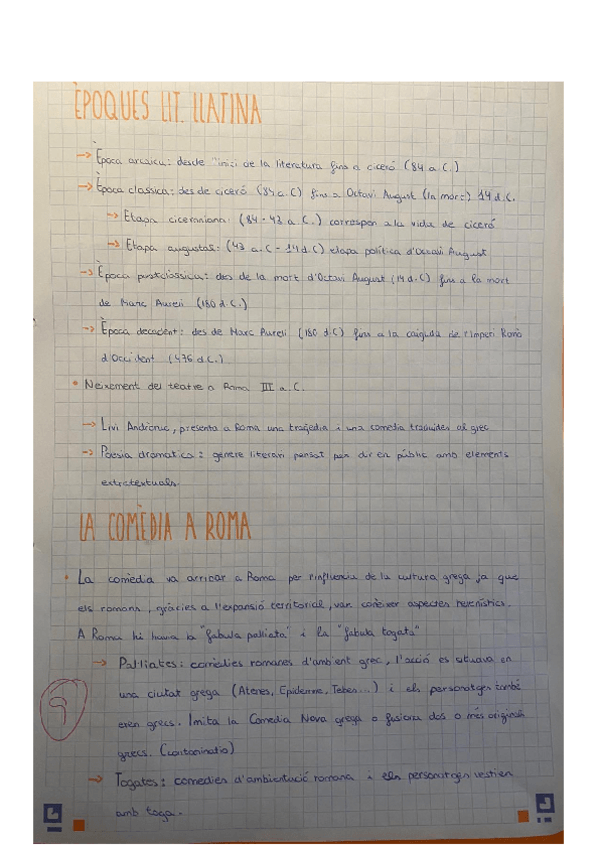 ÈPOQUES LIT. LLATINA
→ Època arcaica: desde inici de la literatura fins a ciceró (84 a.C.)
→ Època classica: des de ciceró (84 a.C) fins a Octavi August (la mort) 14 d.C.
→ Etapa ciceroniana: (84-43 a.C.) correspon a la vida de ciceró
→ Etapa augustas: (43 a.C - 14 d.C) etapa política d'Octavi August
→ Època postclàssica: des de la mort d'Octavi August (14 d.C) fins a la mort
de Marc Aureli (180 d.C.)
→ Època decadent: des de Marc Aureli (180 d.C) fins a la caiguda de l'Imperi Romà
d'Occident (476 d.C.)
• Neixement del teatre a Roma III a.C.
→ Livi Andrònic, presenta a Roma una tragèdia i una comedia traduides al grec
→ Poesia dramatica: gènere literari pensat per dir en públic amb elements
extratextuals.
LA COMÈDIA A ROMA
• La comèdia va arribar a Roma per l'influencia de la cultura grega ja que
els romans, gràcies a l'expansió territorial, van conèixer aspectes hel·lenístics.
A Roma hi havia la "fabula palliata" i la "fabula togata"
→ Pal·liates: comèdies romanes d'ambient grec, l'acció es situava en
una ciutat grega (Atenes, Epidemne, Tebes...) i els personatges també
eren grecs. Imita la Comedia Nova grega o fusiona dos o més originals
grecs. (contaminatio)
→ Togates: comedies d'ambientació romana i els personatges vestien
amb toga.
9